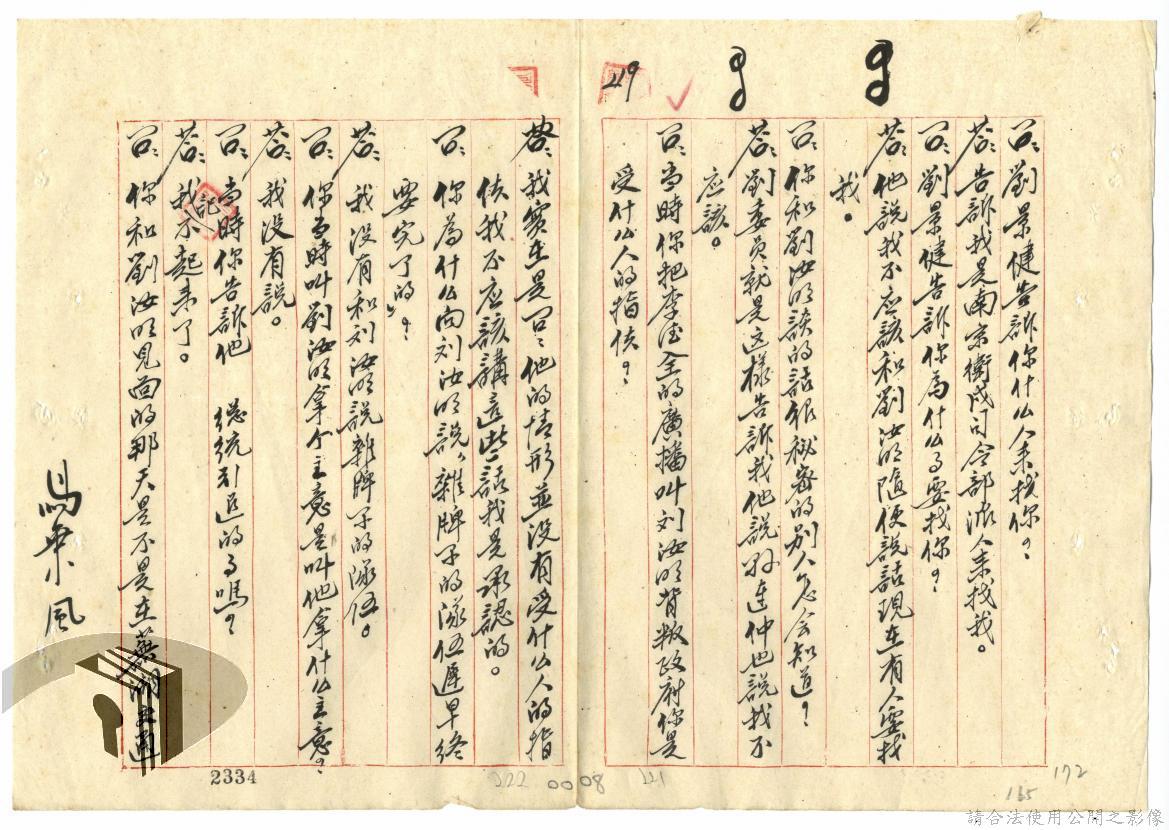 219
問：劉景健告訴你什么人来找你？
答：告訴我是南京衛戍司令部派人来找我。
問：劉景健告訴你為什么事要找你？
答：他說我不应該和劉汝明隨便說話現在有人要找
我。
問：你和劉汝明談的話很秘密的別人怎会知道？
答：劉委员就是这樣告訴我他說孙連仲也說我不
应該。
問：当時你把李法全的廣播叫刘汝明背叛政府你是
受什么人的指使？
答：我实在是問他的情形並没有受什么人的指
使我不应該講这些話我是承認的。
問：你為什么向刘汝明說，雜牌子的隊伍遲早終
要完了的」？
答：我没有和刘汝明說雜牌子的隊伍。
問：你当時叫劉汝明拿个主意是叫他拿什么主意？
答：我没有說。
問：当時你告訴他 總統引退的事嗎？
答：我記不起来了。
問：你和劉汝明見面的那天是不是在蕪湖
2334
222
0008
221
172
165
請合法使用公開之影像